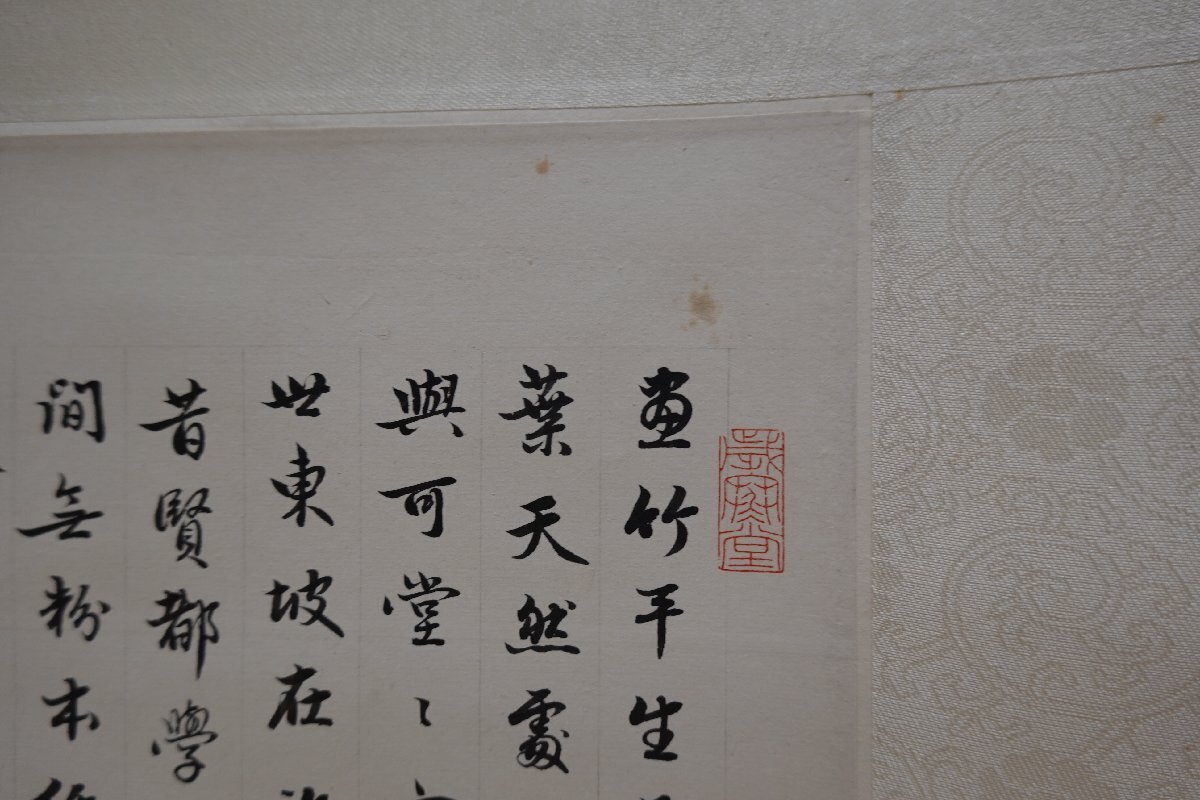 畫竹平生
葉天然處
與可堂〻
世東坡在
昔賢都學
間無粉本